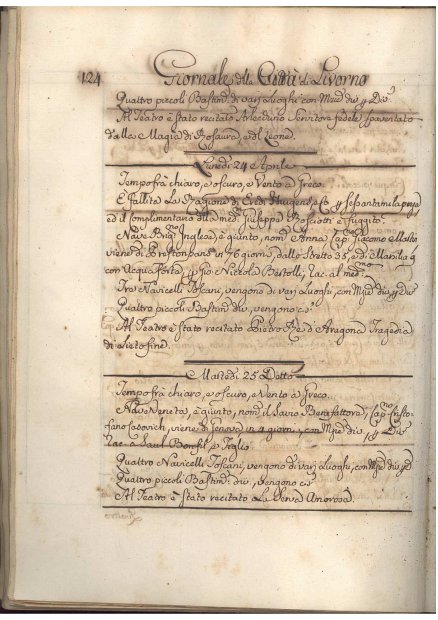 124 Giornale della Città di Livorno
Quattro piccoli Bastim.ti di varj Luoghi con Mzie div.
Al Teatro è stato recitato Arlecchino Servitore fedele spaventato
dalla Magia di Rosaura, e del Leone.
Lunedì 24 Aprile
Tempo frà chiaro, e oscuro, e Vento à Greco.
È fallita La Ragione di Eredi Hugens e C. p sessantamila pezze
ed il Complimentario della med. Giuseppe è fuggito.
Nave Brig.no Inglese, è giunto, nom. Anna, Cap. Giacomo
viene di Prestonpans in 76 giorni, dallo Stretto 35, e di Marsilia 9
con Acqua Forte, p Sig. Nickola Bestolli, rac. al med.mo
Tre Navicelli Toscani, vengono di varj Luoghi, con Mzie div. p Div.
Quattro piccoli Bastim.ti div., vengono c.s
Al Teatro è stato recitato Pietro Rè d'Aragona Tragedia
di Lieto fine.
Martedì 25 Detto
Tempo frà chiaro, e oscuro, e Vento à Greco.
Nave Veneta, è giunta, nom. il Savio Benefattore, Cap.no Cristo-
fano viene di Genova in 4 giorni, con Mzie div., p Div.
rac. a Saul Bonfil, e Figlio
Quattro Navicelli Toscani, vengono di varj Luoghi, con Mzie div. p
Quattro piccoli Bastim.ti div., vengono c.s
Al Teatro è stato recitato La Serva Amorosa.